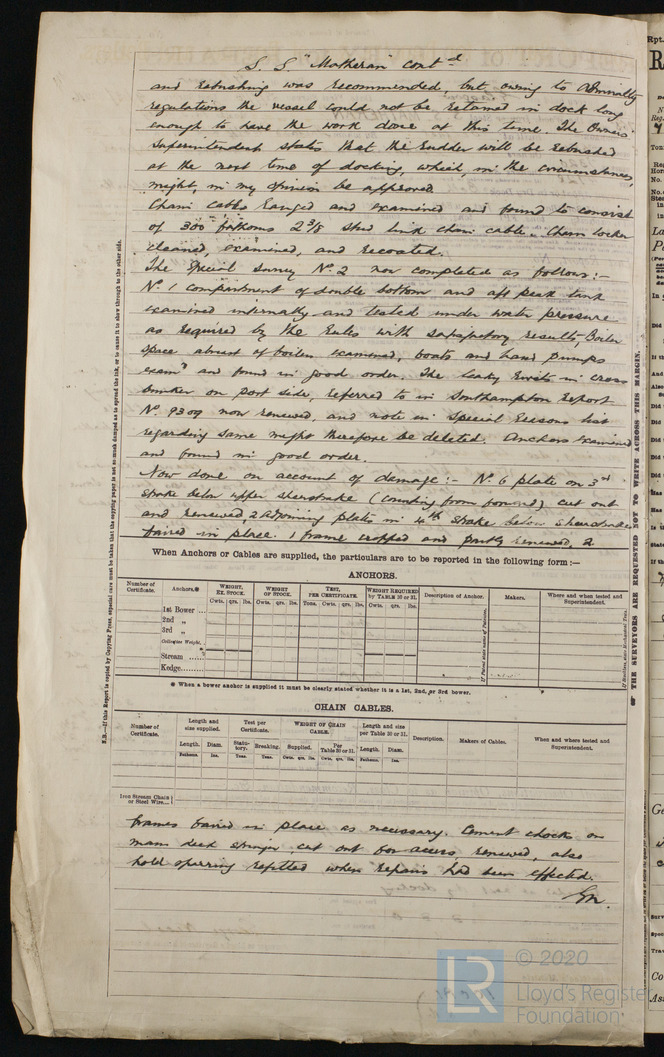 S. S. "Matheran" contd
and rebushing was recommended, but owing to Admiralty
regulations the vessel could not be retained in dock long
enough to have the work done at this time. The Owners'
Superintendent states that the rudder will be rebushed
at the next time of docking, which, in the circumstances,
might, in my opinion be approved
Chain cables ranged and examined and found to consist
of 300 fathoms 2 3/8 stud link chain cable. Chain locker
cleaned, examined, and recoated.
The Special Survey No. 2 now completed as follows:-
No. 1 compartment of double bottom and aft peak tank
examined internally and tested under water pressure
as required by the Rules with satisfactory results, Boiler
space abreast of boilers examined, boats and hand pumps
examd and found in good order. The leaky rivets in cross
bunker on port side, referred to in Southampton Report
No. 9309 now renewed, and note in Special Reasons list
regarding same might therefore be deleted. Anchors examined
and found in good order
Now done on account of damage:- No. 6 plate on 3rd
strake below upper sheerstrake (counting from forward) cut out
and renewed, 2 adjoining plates in 4th strake below sheerstrake
faired in place. 1 frame cropped and partly renewed, 2
When Anchors or Cables are supplied, the particulars are to be reported in the following form:—
ANCHORS.
Number of Certificate. Anchors.* WEIGHT, EX. STOCK. WEIGHT OF STOCK. TEST, PER CERTIFICATE. WEIGHT REQUIRED by TABLE 30 or 31. Description of Anchor. Makers. Where and when tested and Superintendent.
Cwts. qrs. lbs. Cwts. qrs. lbs. Tons. Cwts. qrs. lbs. Cwts. qrs. lbs.
1st Bower ...
2nd „
3rd „
Collective Weight.
Stream ......
Kedge.......
* When a bower anchor is supplied it must be clearly stated whether it is a 1st, 2nd, or 3rd bower.
CHAIN CABLES.
Number of Certificate. Length and size supplied. Test per Certificate. WEIGHT OF CHAIN CABLE. Length and size per Table 30 or 31. Description. Makers of Cables. When and where tested and Superintendent.
Length. Diam. Statutory. Breaking. Supplied. Per Table 30 or 31. Length. Diam.
Fathoms. Ins. Tons. Tons. Cwts. qrs. lbs. Cwts. qrs. lbs. Fathoms. Ins.
Iron Stream Chain or Steel Wire...
frames faired in place as necessary. Cement chocks on
main deck stringer, cut out for access, renewed, also
hold sparring refitted when repairs had been effected.
THE SURVEYORS ARE REQUESTED NOT TO WRITE ACROSS THIS MARGIN.
N.B.—If this Report is copied by Copying Press, especial care must be taken that the copying paper is not so much damped as to spread the ink, or to cause it to show through to the other side.
LR
© 2020
Lloyd's Register
Foundation